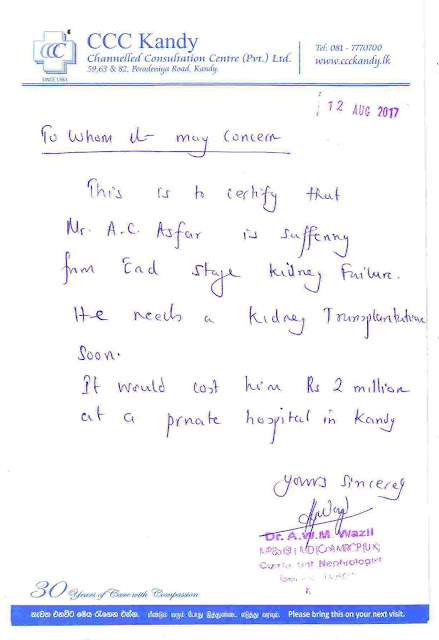 CCC
SINCE 1983
CCC Kandy
Channelled Consultation Centre (Pvt.) Ltd.
59,63 & 82, Peradeniya Road, Kandy.
Tel: 081 - 7770700
www.ccckandy.lk
12 AUG 2017
To Whom it may Concern
This is to certify that
Mr. A.C. Asfar is suffering
from End Stage Kidney Failure.
He needs a Kidney Transplantation
Soon.
It would cost him Rs 2 million
at a private hospital in Kandy
Yours Sincerely
Dr. A.W.M. Wazil
Consultant Nephrologist
30 Years of Care with Compassion
නැවත එනවිට මෙය රැගෙන එන්න. மீண்டும் வரும் போது இத்துண்டை எடுத்து வரவும். Please bring this on your next visit.